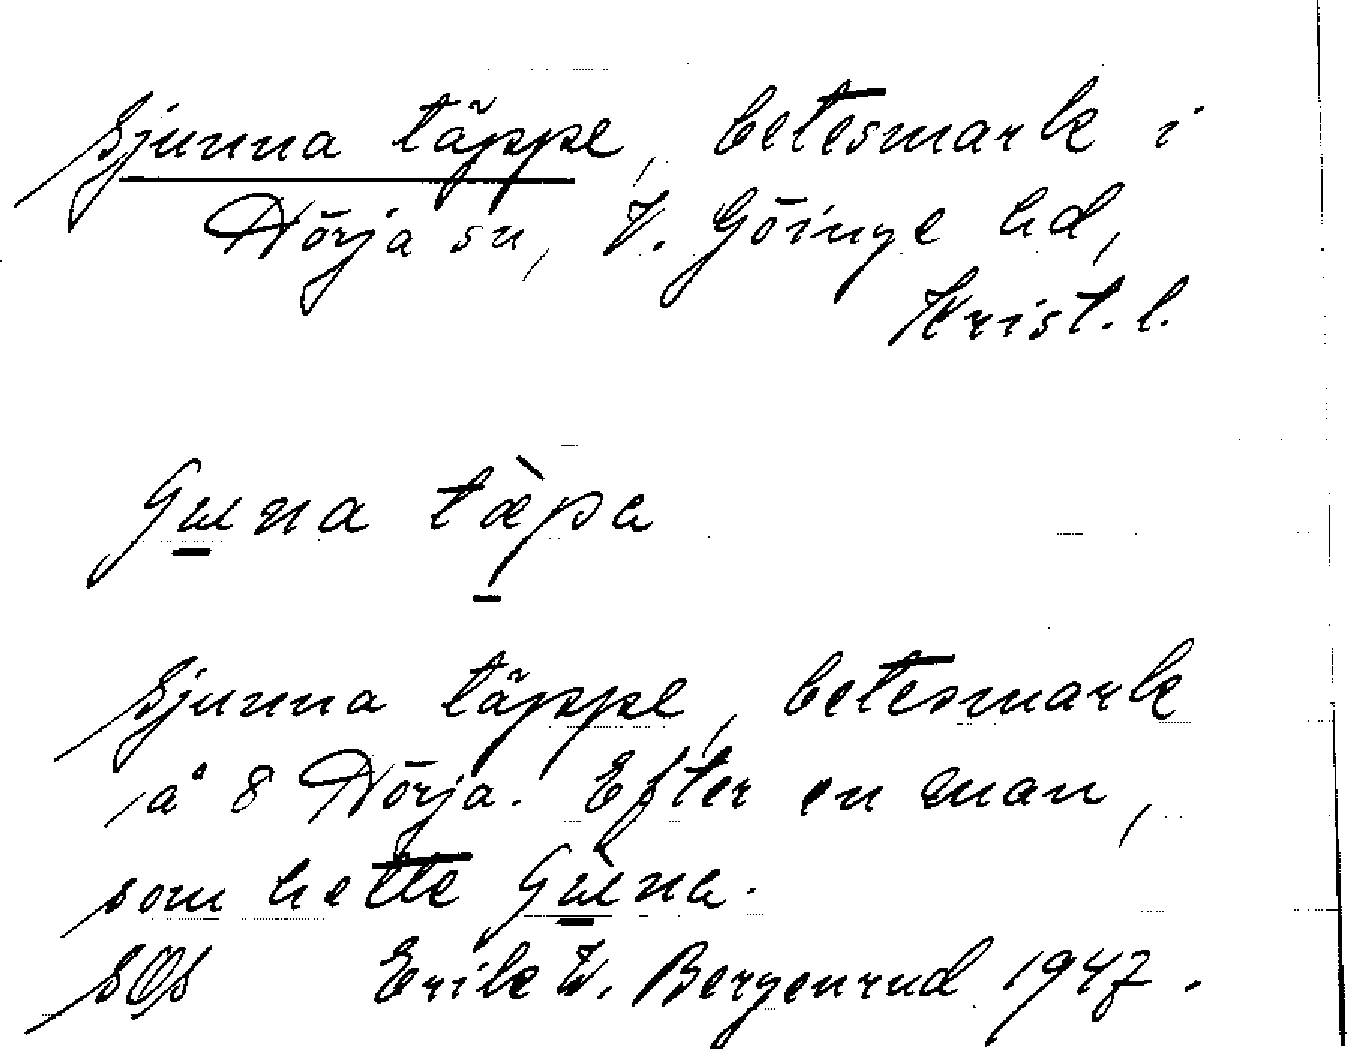 Sjunna täppe, betesmark i
Nörja sn, V. Göinge hd,
Krist. l.
Guna tæ̀pa
Sjunna täppe, betesmark
å 8 Nörja. Efter en man,
som hette Gùna.
SOS Erik W. Bergenrud 1947.